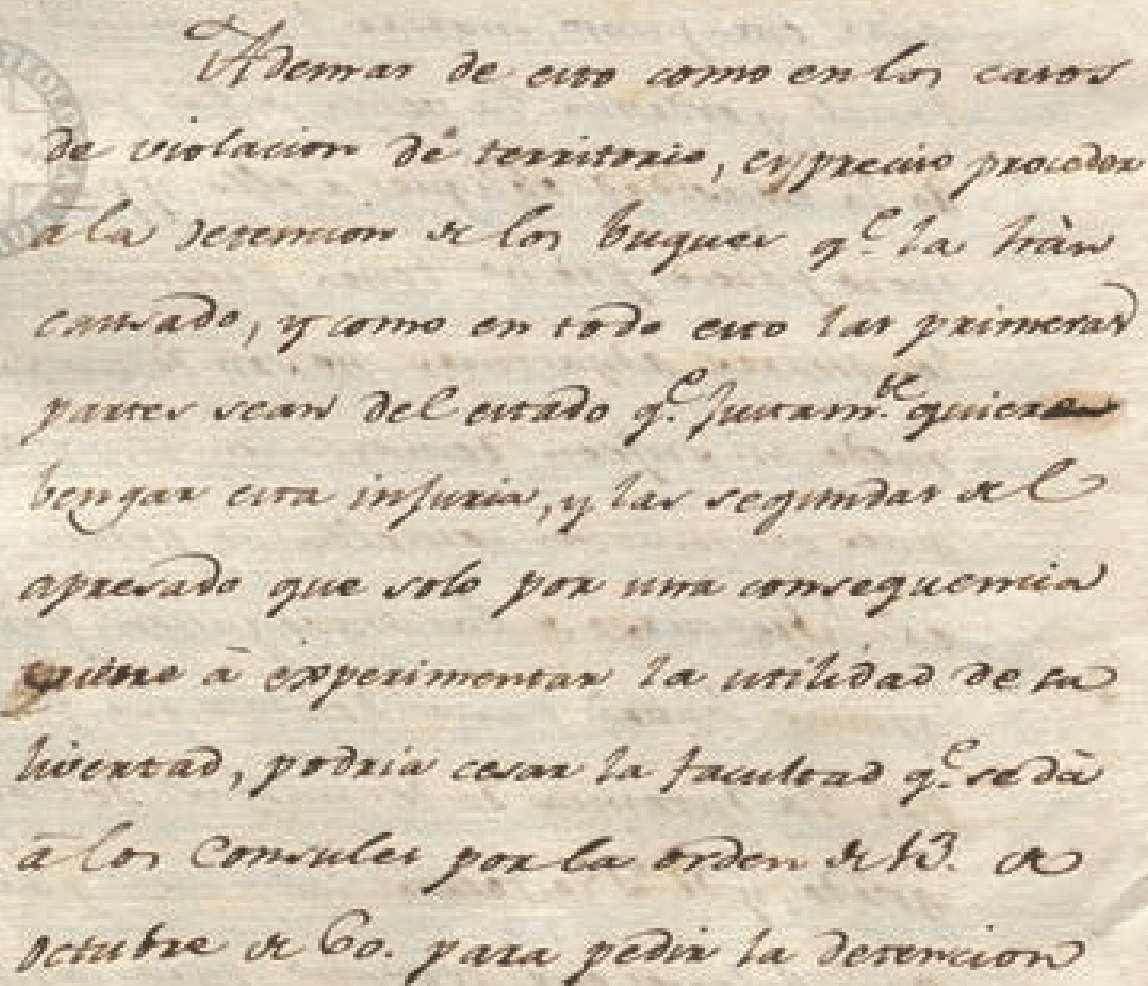 Ademas de esto como en los casos
de violacion de territorio, es preciso proceder
a la detencion de los buques q.e la hàn
causado, y como en todo esto las primeras
partes sean del estado q.e justam.te quiere
bengar esta injuria, y las segundas del
apresado que solo por una consequencia
viene à experimentar la utilidad de su
livertad, podria cesar la facultad q.e se dà
à los Consules por la orden de 13. de
octubre de 60. para pedir la detencion